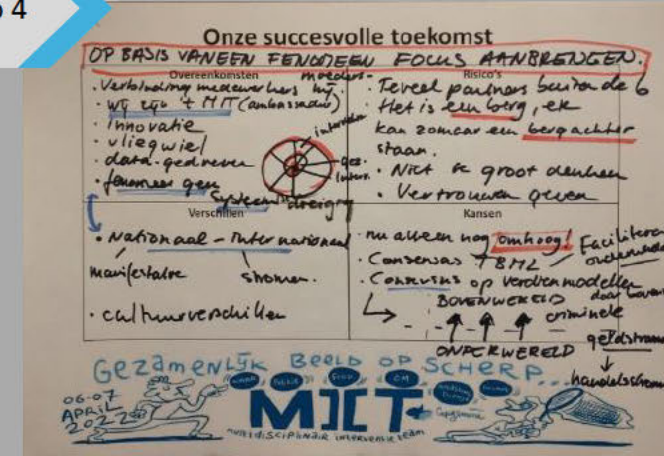 4
Onze succesvolle toekomst
OP BASIS VAN EEN FENOMEEN FOCUS AANBRENGEN.
Overeenkomsten
moeders-
• Verbinding medewerkers bij
• wij zijn 't MIT (ambassadeur)
• Innovatie
• vliegwiel
• data-gedreven
• fenomeen gen
interventies
gez.
Interv.
Systeem dreiging
Risico's
• Teveel partners buiten de 6
• Het is een berg, er
kan zomaar een berg achter
staan.
• Niet te groot denken
• Vertrouwen geven
Verschillen
• Nationaal – Internationaal
manifestatie
stromen.
• cultuurverschillen
Kansen
• nu alleen nog omhoog!
• Consensus TBML
Faciliteren
• Consensus op verdienmodellen
door boven
BOVENWERELD
criminele
ONDERWERELD
geldstromen
handelsstromen
GEZAMENLIJK BEELD OP SCHERP...
06-07
APRIL
2022
FIOD
OM
MIT
multidisciplinair interventie team